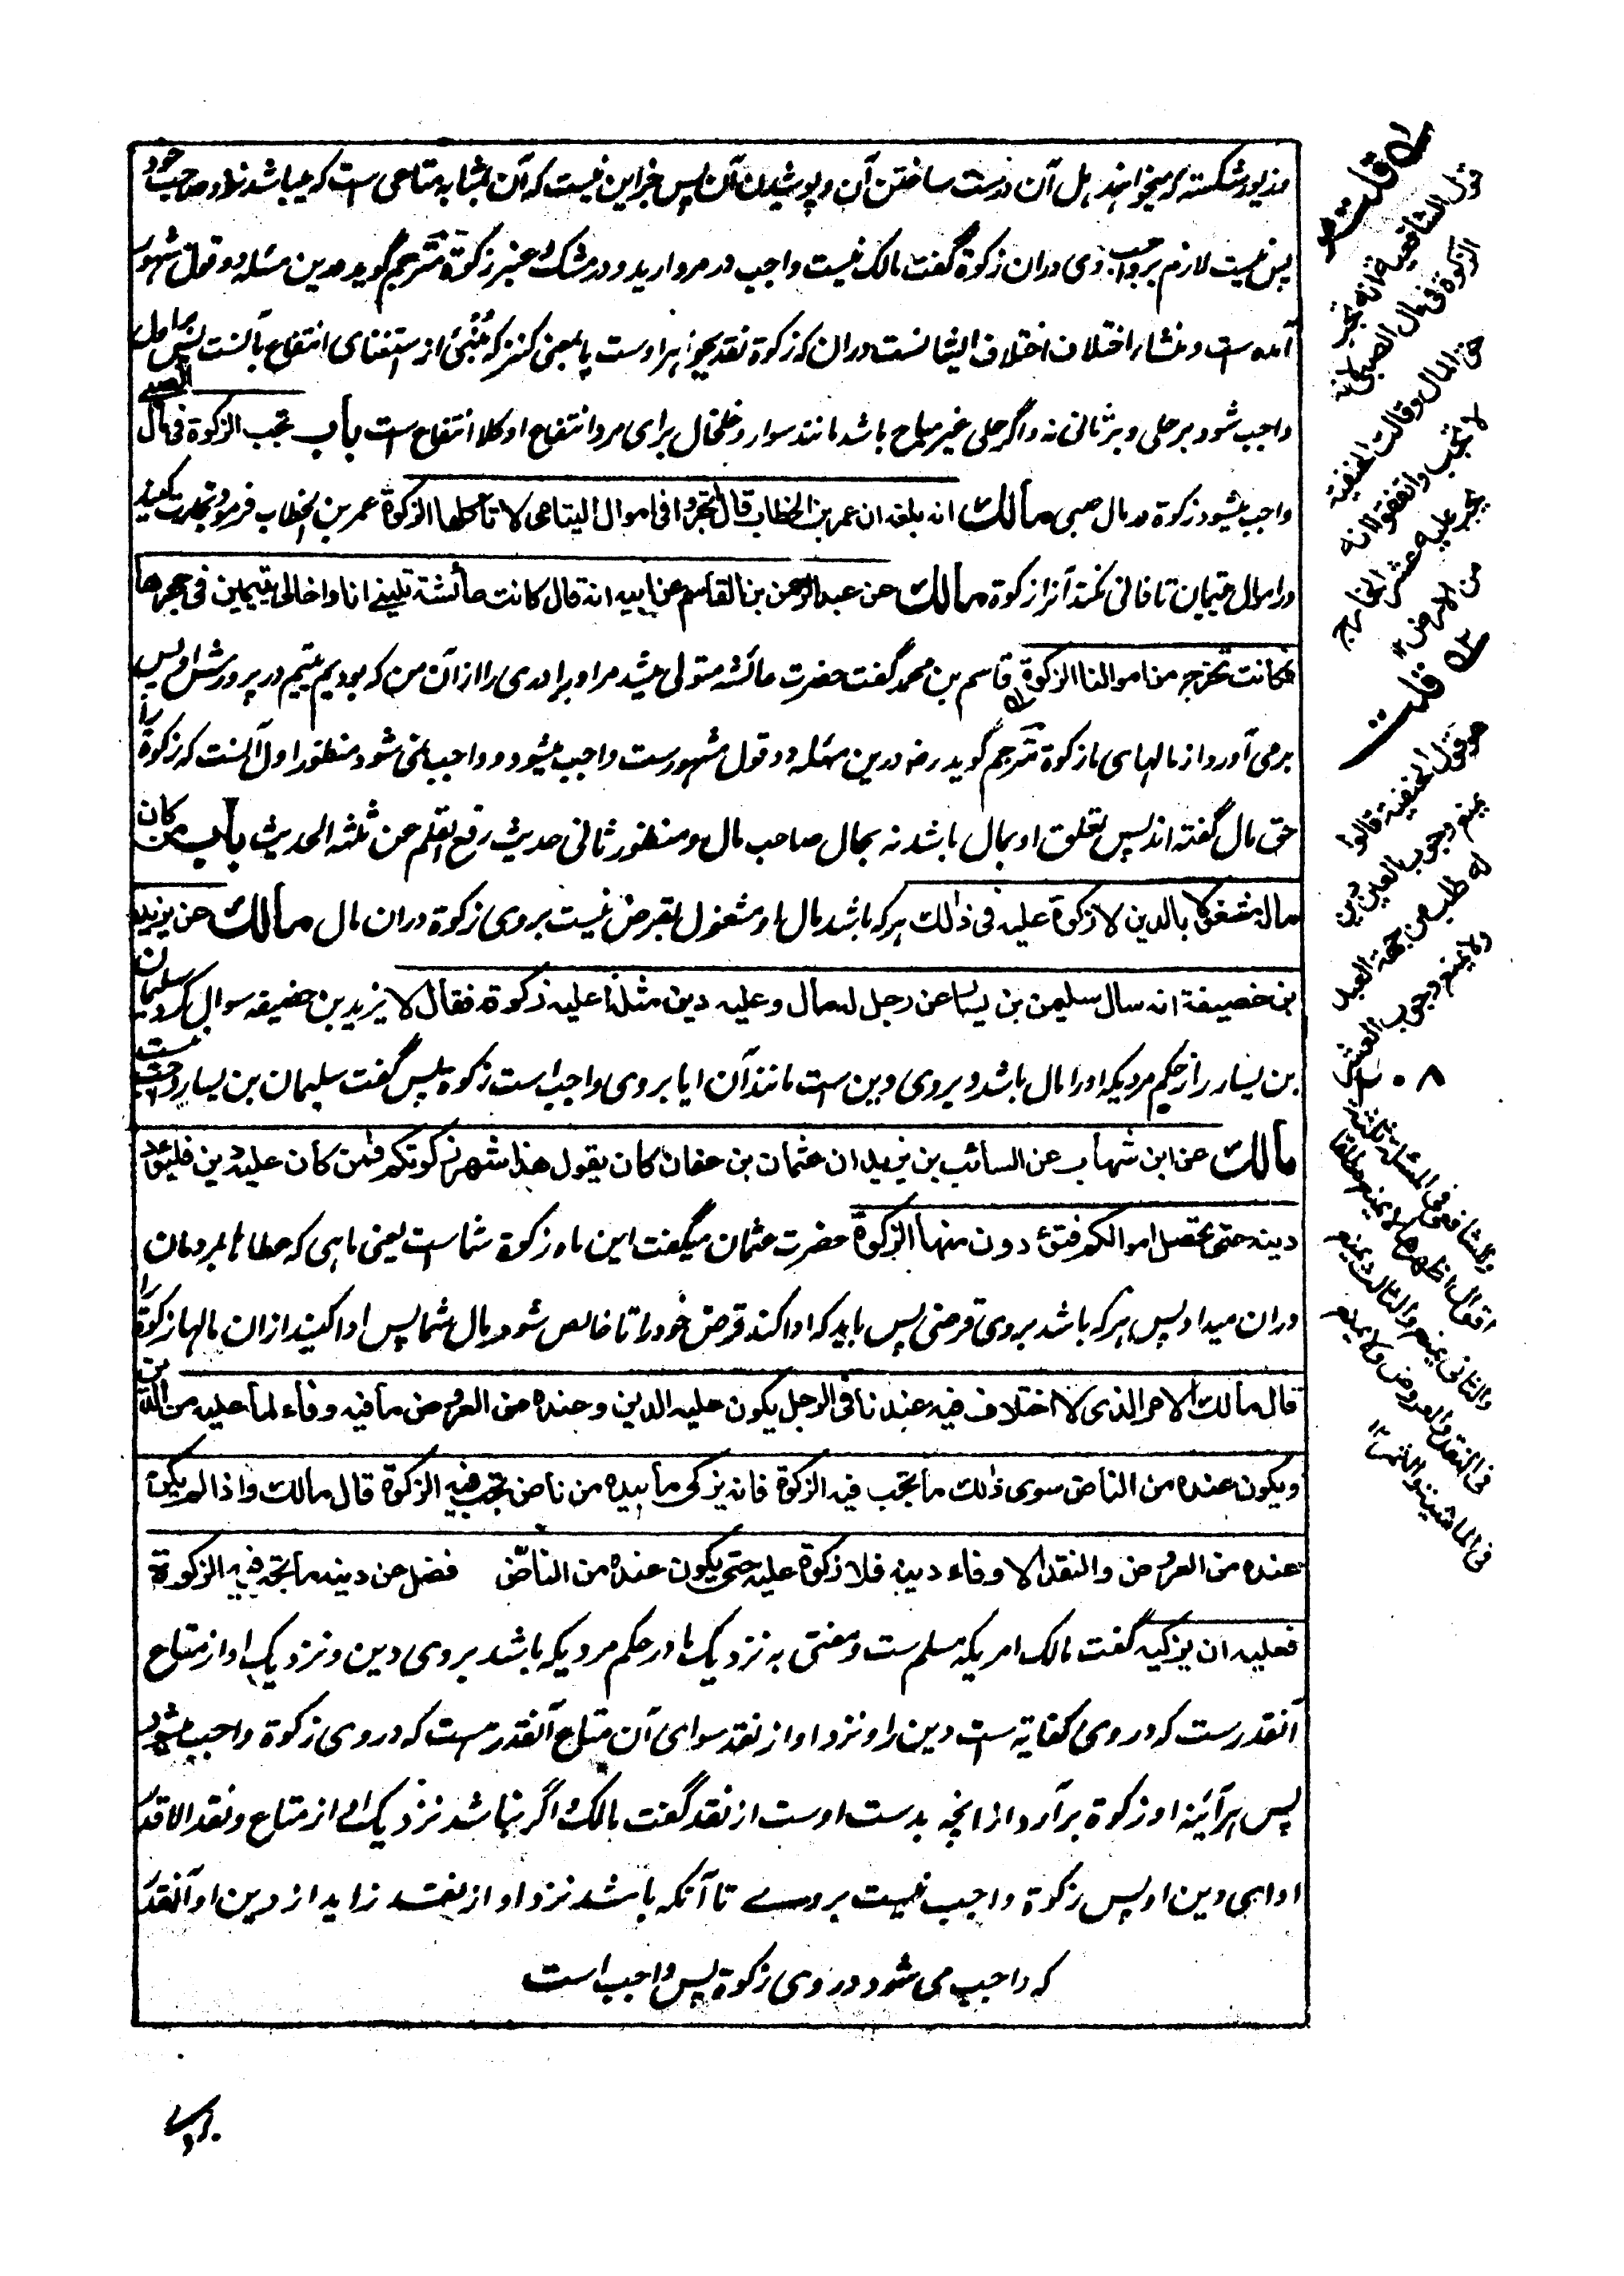 و زیور شکسته که میخواهند اهل آن درست ساختن آن و پوشیدن آن پس جز این نیست که آن بمثابه متاعی است که میباشد نزد صاحب خود
پس نیست لازم بر صاحب وی دران زکوة گفت مالک نیست واجب در مروارید و در مشک و عنبر زکوة مترجم گوید درین مسئله دو قول مشهور
آمده است و منشاء اختلاف اختلاف ایشانست دران که زکوة نقد بجواهر اوست یا بمعنی کنز که مُنْبِئ از استغنای انتفاع بآنست پس بر اول
واجب شود بر حلی و بر ثانی نه و اگر حلی غیر مباح باشد مانند سوار و خلخال برای مرد انتفاع او کلا انتفاع است باب تجب الزکوة فی مال الصبی
واجب میشود زکوة در مال صبی مالك انه بلغه ان عمر بن الخطاب قال اتجروا فی اموال الیتامی لا تاکلها الزکوة عمر بن الخطاب فرمود تجارت کنید
در اموال یتیمان تا فانی نکند آنرا زکوة مالك عن عبد الرحمن بن القاسم عن ابیه انه قال کانت عائشة تلینی انا و اخا لی یتیمین فی حجرها
فکانت تخرج من اموالنا الزکوة قاسم بن محمد گفت حضرت عائشه متولی میشد مرا و برادری را از آن من که بودیم یتیم در پرورش او پس
برمی آورد از مالهای ما زکوة مترجم گوید رضه درین مسئله دو قول مشهورست واجب میشود و واجب نمی شود منظور اول آنست که زکوة را
حق مال گفته اند پس تعلق او بمال باشد نه بحال صاحب مال و منظور ثانی حدیث رفع القلم عن ثلثه الحدیث باب من کان
ماله مشغولا بالدین لا زکوة علیه فی ذلك هر که باشد مال او مشغول بقرض نیست بروی زکوة دران مال مالك عن یزید
بن خصیفة انه سال سلیمن بن یسار عن رجل له مال و علیه دین مثله أعلیه زکوة فقال لا یزید بن خصیفه سوال کرد سلیمان
بن یسار را از حکم مردیکه او را مال باشد و بروی دین ست مانند آن ایا بروی واجب است زکوة پس گفت سلیمان بن یسار واجب نیست
مالك عن ابن شهاب عن السائب بن یزید ان عثمان بن عفان کان یقول هذا شهر زکوتکم فمن کان علیه دین فلیؤد
دینه حتی تحصل اموالکم فتؤدون منها الزکوة حضرت عثمان میگفت این ماه زکوة شماست یعنی ماهی که عطا بمردمان
دران میداد پس هر که باشد بروی قرضی پس باید که ادا کند قرض خود را تا خالص شود مال شما پس ادا کنید ازان مالها زکوة را
قال مالك الامر الذی لا اختلاف فیه عندنا فی الرجل یکون علیه الدین و عنده من العروض ما فیه وفاء لما علیه من الدین
و یکون عنده من الناض سوی ذلك ما تجب فیه الزکوة فانه یزکی ما بیده من ناض تجب فیه الزکوة قال مالك و اذا لم یکن
عنده من العروض و النقد الا وفاء دینه فلا زکوة علیه حتی یکون عنده من الناضّ فضل عن دینه ما تجب فیه الزکوة
فعلیه ان یزکیه گفت مالک امریکه مسلم ست و مفتی به نزدیک ما در حکم مردیکه باشد بروی دین و نزدیک او از متاع
آنقدرست که در وی کفایه ست دین را و نزد او از نقد سوای آن متاع آنقدر هست که در وی زکوة واجب میشود
پس هر آئینه او زکوة برآرد از انچه بدست اوست از نقد گفت مالک و اگر نباشد نزدیک او از متاع و نقد الا قدر
ادای دین او پس زکوة واجب نیست بروے تا آنکه باشد نزد او از نقد زاید از دین او آنقدر
که واجب می شود در وی زکوة پس واجب است
بروے
له قلت
قول الشافعیة انه تجب
الزکوة فی مال الصبی لانه
حق المال و قالت الحنفیة
لا تجب و اتفقوا انه
یجب علیه عشر الخارج
من الارض ۱۲
له قلت
هو قول الحنفیة قالوا
یمنع وجوب العین دین
له طلب من جهة العبد
ولا یمنع وجوب العشر
وللشافعی فی المسئلة ثلثة
اقوال اظهرها لا یمنع مطلقا
والثانی یمنع والثالث یمنع
فی النقد والعروض ولا یمنع
فی الماشیة والثمر ۱۲